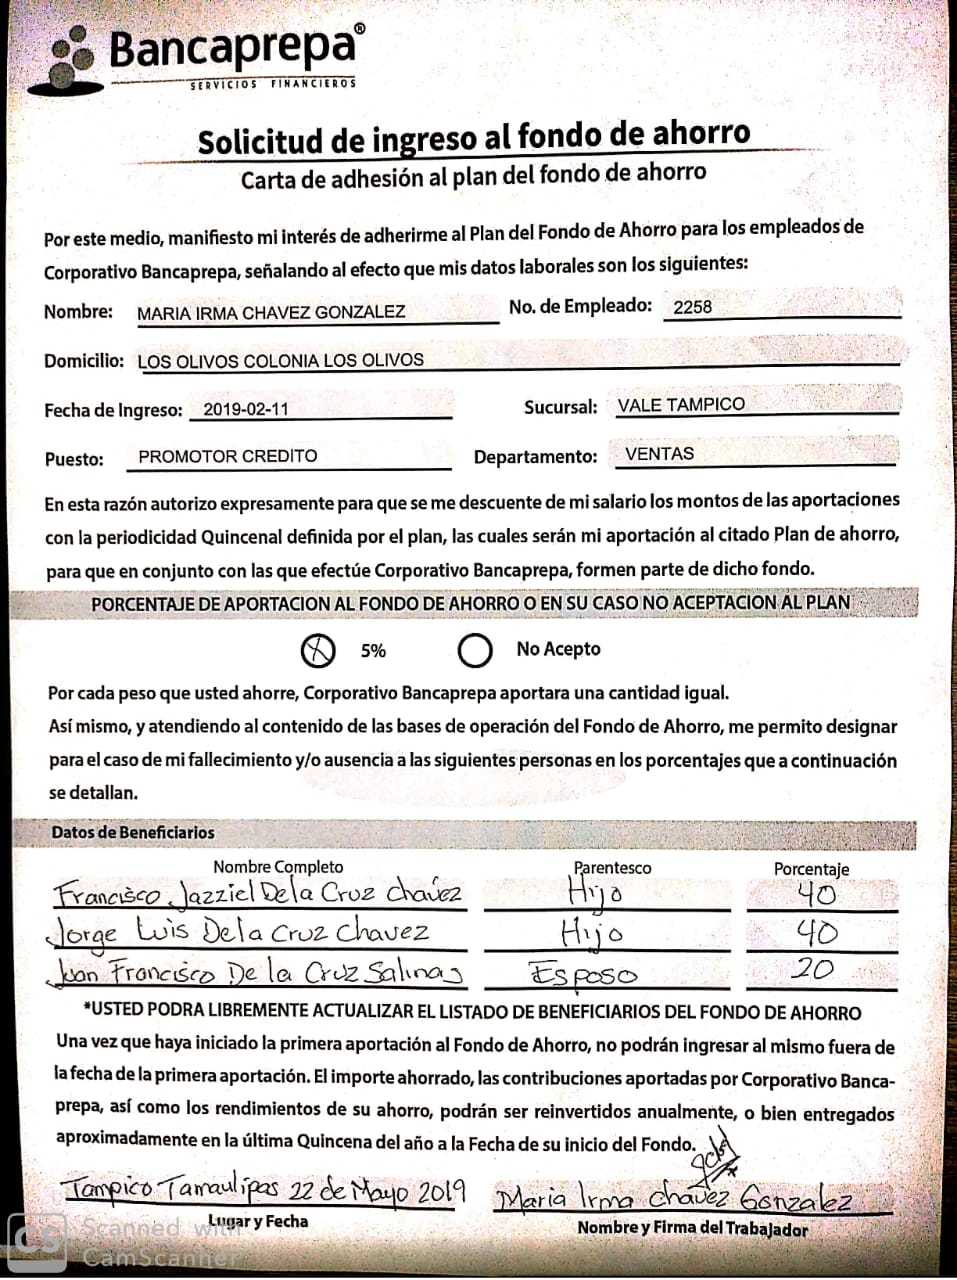 Bancaprepa®
SERVICIOS FINANCIEROS
Solicitud de ingreso al fondo de ahorro
Carta de adhesión al plan del fondo de ahorro
Por este medio, manifiesto mi interés de adherirme al Plan del Fondo de Ahorro para los empleados de
Corporativo Bancaprepa, señalando al efecto que mis datos laborales son los siguientes:
Nombre: MARIA IRMA CHAVEZ GONZALEZ No. de Empleado: 2258
Domicilio: LOS OLIVOS COLONIA LOS OLIVOS
Fecha de Ingreso: 2019-02-11 Sucursal: VALE TAMPICO
Puesto: PROMOTOR CREDITO Departamento: VENTAS
En esta razón autorizo expresamente para que se me descuente de mi salario los montos de las aportaciones
con la periodicidad Quincenal definida por el plan, las cuales serán mi aportación al citado Plan de ahorro,
para que en conjunto con las que efectúe Corporativo Bancaprepa, formen parte de dicho fondo.
PORCENTAJE DE APORTACION AL FONDO DE AHORRO O EN SU CASO NO ACEPTACION AL PLAN
5% No Acepto
Por cada peso que usted ahorre, Corporativo Bancaprepa aportara una cantidad igual.
Así mismo, y atendiendo al contenido de las bases de operación del Fondo de Ahorro, me permito designar
para el caso de mi fallecimiento y/o ausencia a las siguientes personas en los porcentajes que a continuación
se detallan.
Datos de Beneficiarios
Nombre Completo Parentesco Porcentaje
Francisco Jazziel De la Cruz Chavez Hijo 40
Jorge Luis De la Cruz Chavez Hijo 40
Juan Francisco De la Cruz Salinas Esposo 20
*USTED PODRA LIBREMENTE ACTUALIZAR EL LISTADO DE BENEFICIARIOS DEL FONDO DE AHORRO
Una vez que haya iniciado la primera aportación al Fondo de Ahorro, no podrán ingresar al mismo fuera de
la fecha de la primera aportación. El importe ahorrado, las contribuciones aportadas por Corporativo Banca-
prepa, así como los rendimientos de su ahorro, podrán ser reinvertidos anualmente, o bien entregados
aproximadamente en la última Quincena del año a la Fecha de su inicio del Fondo.
Tampico Tamaulipas 22 de Mayo 2019 Maria Irma Chavez Gonzalez
Lugar y Fecha Nombre y Firma del Trabajador
CS Scanned with
CamScanner